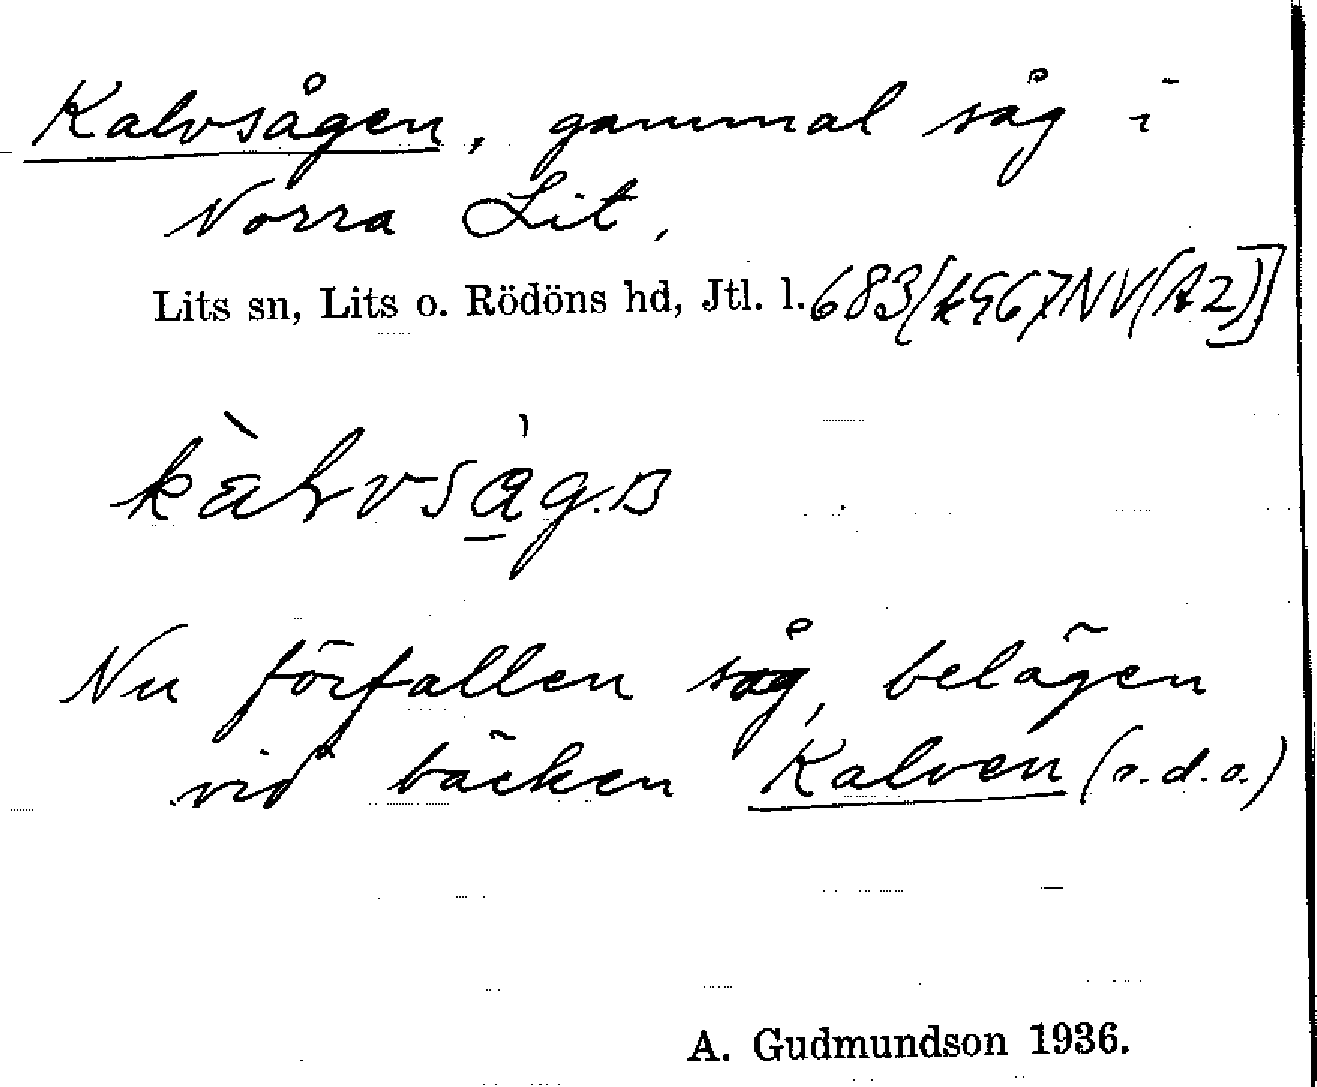 Kalvsågen, gammal såg i
Norra Lit,
Lits sn, Lits o. Rödöns hd, Jtl. l. 683
Nu förfallen såg, belägen
vid bäcken Kalven (s.d.o.)
A. Gudmundson 1936.